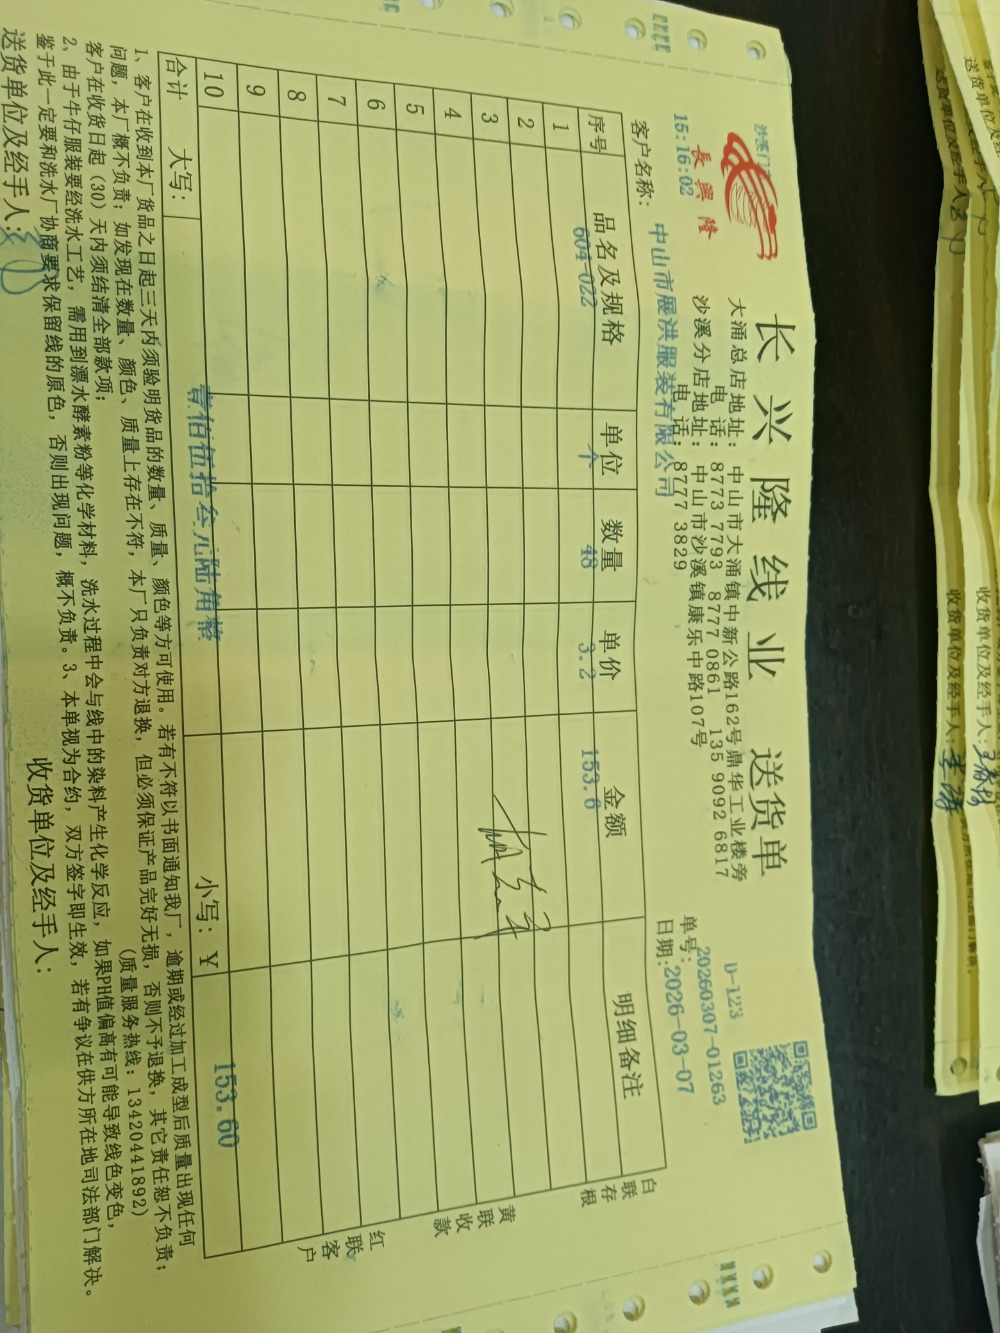 長興隆
长兴隆线业 送货单
沙溪门
15:16:02
大涌总店地址: 中山市大涌镇中新公路162号鼎华工业楼旁
电 话: 8773 7793 8777 0861 135 9092 6817
沙溪分店地址: 中山市沙溪镇康乐中路107号
电 话: 8777 3829
D-123
单号: 20260307-01263
日期: 2026-03-07
客户名称: 中山市展洪服装有限公司
序号 品名及规格 单位 数量 单价 金额 明细备注
1 604-022 个 48 3.2 153.6
2
3
4
5
6
7
8
9
10
合计 大写: 壹佰伍拾叁元陆角整 小写: ¥ 153.60
白联存根
黄联收款
红联客户
1、客户在收到本厂货品之日起三天内须验明货品的数量、质量、颜色等方可使用。若有不符以书面通知我厂，逾期或经过加工成型后质量出现任何
问题，本厂概不负责；如发现在数量、颜色、质量上存在不符，本厂只负责对方退换，但必须保证产品完好无损，否则不予退换，其它责任恕不负责；
客户在收货日起（30）天内须结清全部款项； (质量服务热线: 13420441892)
2、由于牛仔服装要经洗水工艺，需用到漂水酵素粉等化学材料，洗水过程中会与线中的染料产生化学反应，如果PH值偏高有可能导致线色变色，
鉴于此一定要和洗水厂协商要求保留线的原色，否则出现问题，概不负责。3、本单视为合约，双方签字即生效，若有争议在供方所在地司法部门解决。
送货单位及经手人: 收货单位及经手人:
送货单位及经手人
收货单位及经手人:
收货单位及经手人: